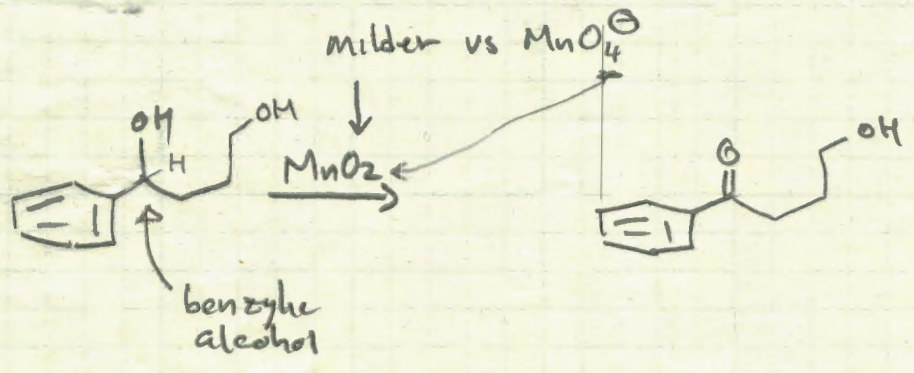 milder vs MnO4⊖
OH
OH
H
MnO2
O
OH
benzylic
alcohol